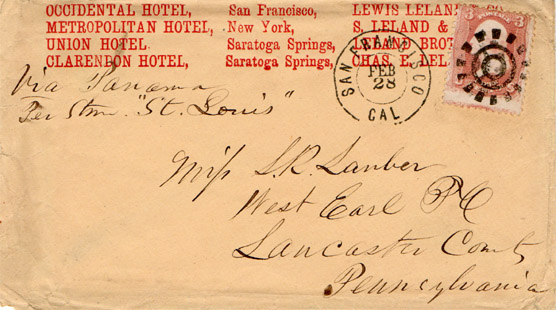 OCCIDENTAL HOTEL, San Francisco, LEWIS LELAND & CO
METROPOLITAN HOTEL, New York, S. LELAND &
UNION HOTEL. Saratoga Springs, LELAND BROT
CLARENDON HOTEL, Saratoga Springs, CHAS. E. LEL
3 POSTAGE 3
SAN FRANCISCO
FEB
28
CAL
Via Panama
Per Stmr. "St. Louis"
Miss S. R. Lauber
West Earl P O
Lancaster County
Pennsylvania